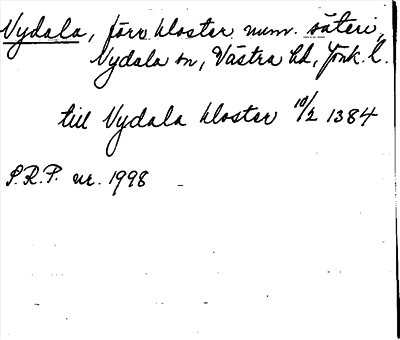 Nydala, förr kloster num. säteri,
Nydala sn, Västra hd, Jönk. l.
till Nydala kloster 10/2 1384
S.R.P. nr. 1998